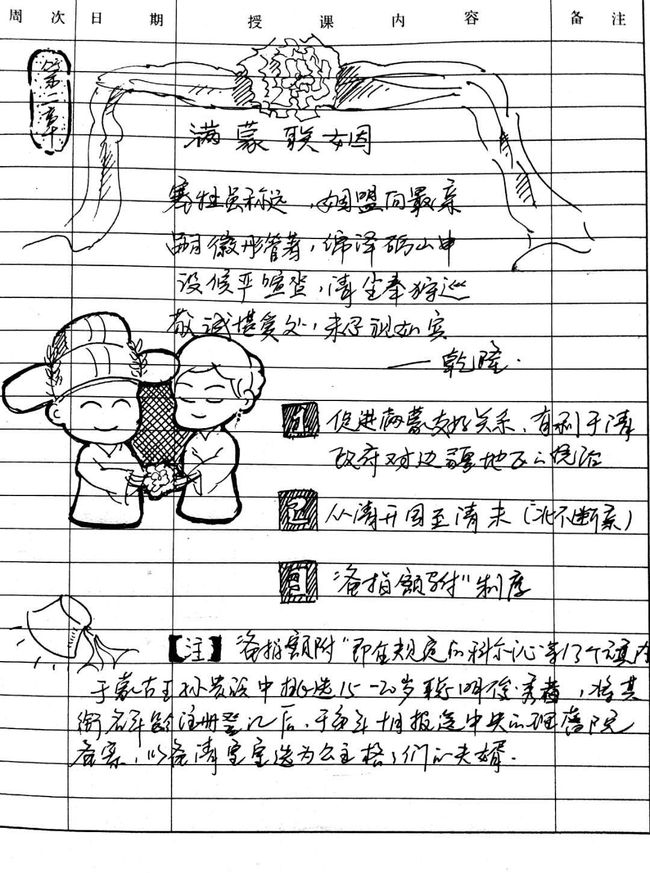 周次 日期 授课内容 备注
第一章
满蒙联姻
塞牧虽称远，姻盟向最亲
嗣徽彤管著，绵泽砺山申
设候严喧沓，清尘奉狩巡
敬诚堪爱处，未忍视如宾
——乾隆.
1 促进满蒙友好关系，有利于清
政府对边疆地区的统治
2 从清开国至清末（不断）
3 "备指额驸"制度
【注】"备指额附"即在规定的科尔沁等13个旗内
于蒙古王孙贵族中挑选15-20岁聪明俊秀者，将其
衔名年龄注册登记后，于每年十月报送中央的理藩院
备案，以备清皇室选为公主格格们的夫婿.